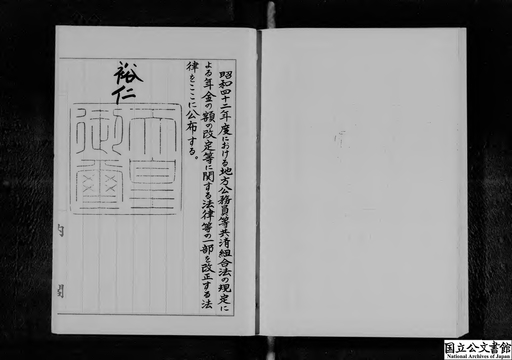 昭和四十二年度における地方公務員等共済組合法の規定に
よる年金の額の改定等に関する法律等の一部を改正する法
律をここに公布する。
裕仁
天皇
御璽
国立公文書館
National Archives of Japan